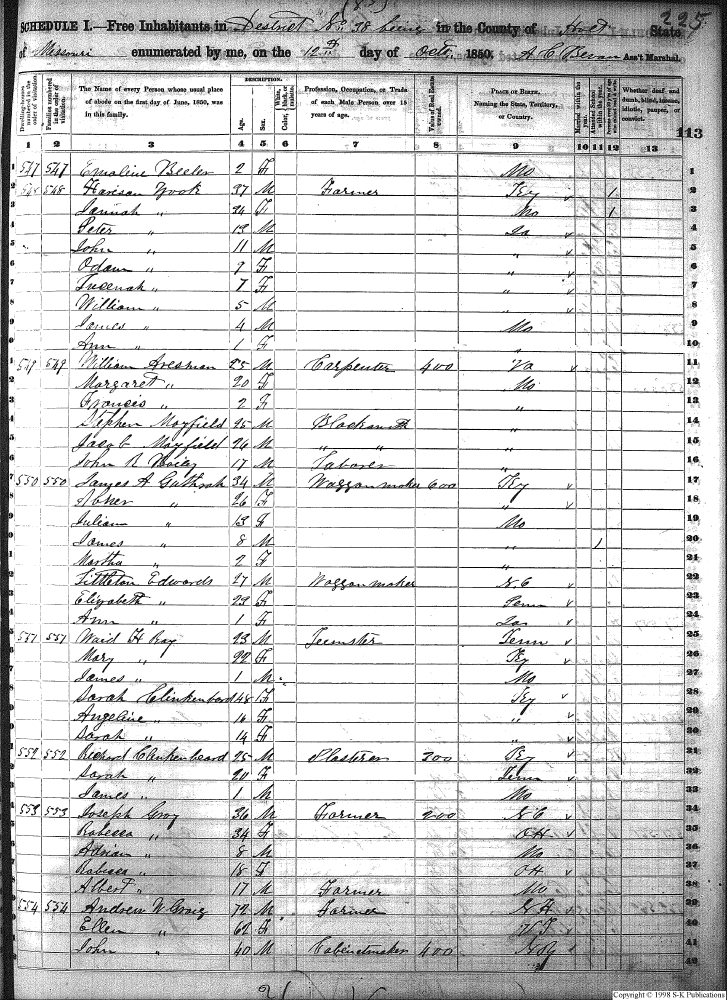 225
SCHEDULE I.—Free Inhabitants in District No. 38 being in the County of Holt State
of Missouri enumerated by me, on the 12th day of Octr 1850. A. C. Bevan Ass't Marshal.
Dwelling-houses numbered in the order of visitation.
Families numbered in the order of visitation.
The Name of every Person whose usual place of abode on the first day of June, 1850, was in this family.
DESCRIPTION.
Age.
Sex.
White, black, or mulatto.
Color,
Profession, Occupation, or Trade of each Male Person over 15 years of age.
Value of Real Estate owned.
PLACE OF BIRTH.
Naming the State, Territory, or Country.
Married within the year.
Attended School within the year.
Whether deaf and dumb, blind, insane, idiotic, pauper, or convict.
113
1 2 3 4 5 6 7 8 9 10 11 12 13
1 547 547 Emaline Beeler 2 F Mo 1
2 548 Harison Zook 27 M Farmer Ky 1 2
3 " 24 F Mo 1 3
4 Peter " 13 M Ia 4
5 John " 11 M " 5
6 Odam " 9 F " 6
7 " 7 F " 7
8 William " 5 M " 8
9 James " 4 M Mo 9
10 Ann " 1 F 10
11 549 549 William 25 M Carpenter 400 Va 11
12 Margaret " 20 F Mo 12
13 Francis " 2 F " 13
14 Stephen Mayfield 25 M Blacksmith " 14
15 Jacob Mayfield 26 M " " " 15
16 John R Bailey 17 M Laborer " 16
17 550 550 James A Guthrah 34 M Waggon maker 600 Ky 17
18 Abner " 26 F " 18
19 Juliam " 13 F Mo 19
20 James " 8 M " 1 20
21 Martha " 2 F " 21
22 Littleton Edwards 27 M Waggon maker N C 22
23 Elizabeth " 23 F Penn 23
24 Ann " 1 F 24
25 551 551 Waid H Ray 23 M Teemster Tenn 25
26 Mary " 22 F Ky 26
27 James " 1 M Mo 27
28 Sarah Clinkenbard 48 F Ky 28
29 Angeline " 16 F " 29
30 Sarah " 14 F " 30
31 552 552 Richard Clenkenbeard 25 M Plasterer 300 Ky 31
32 Sarah " 20 F Tenn 32
33 James " 1 M Mo 33
34 553 553 Joseph Groy 36 M Farmer 200 N C 34
35 Rabecca " 34 F OH 35
36 Adrian " 8 M Mo 36
37 " 18 F OH 37
38 Albert " 17 M Farmer Mo 38
39 554 554 Andrew W Craig 72 M Farmer 39
40 Ellen " 62 F 40
41 John " 40 M Cabinetmaker 400 41
42 42
Copyright © 1998 S-K Publications